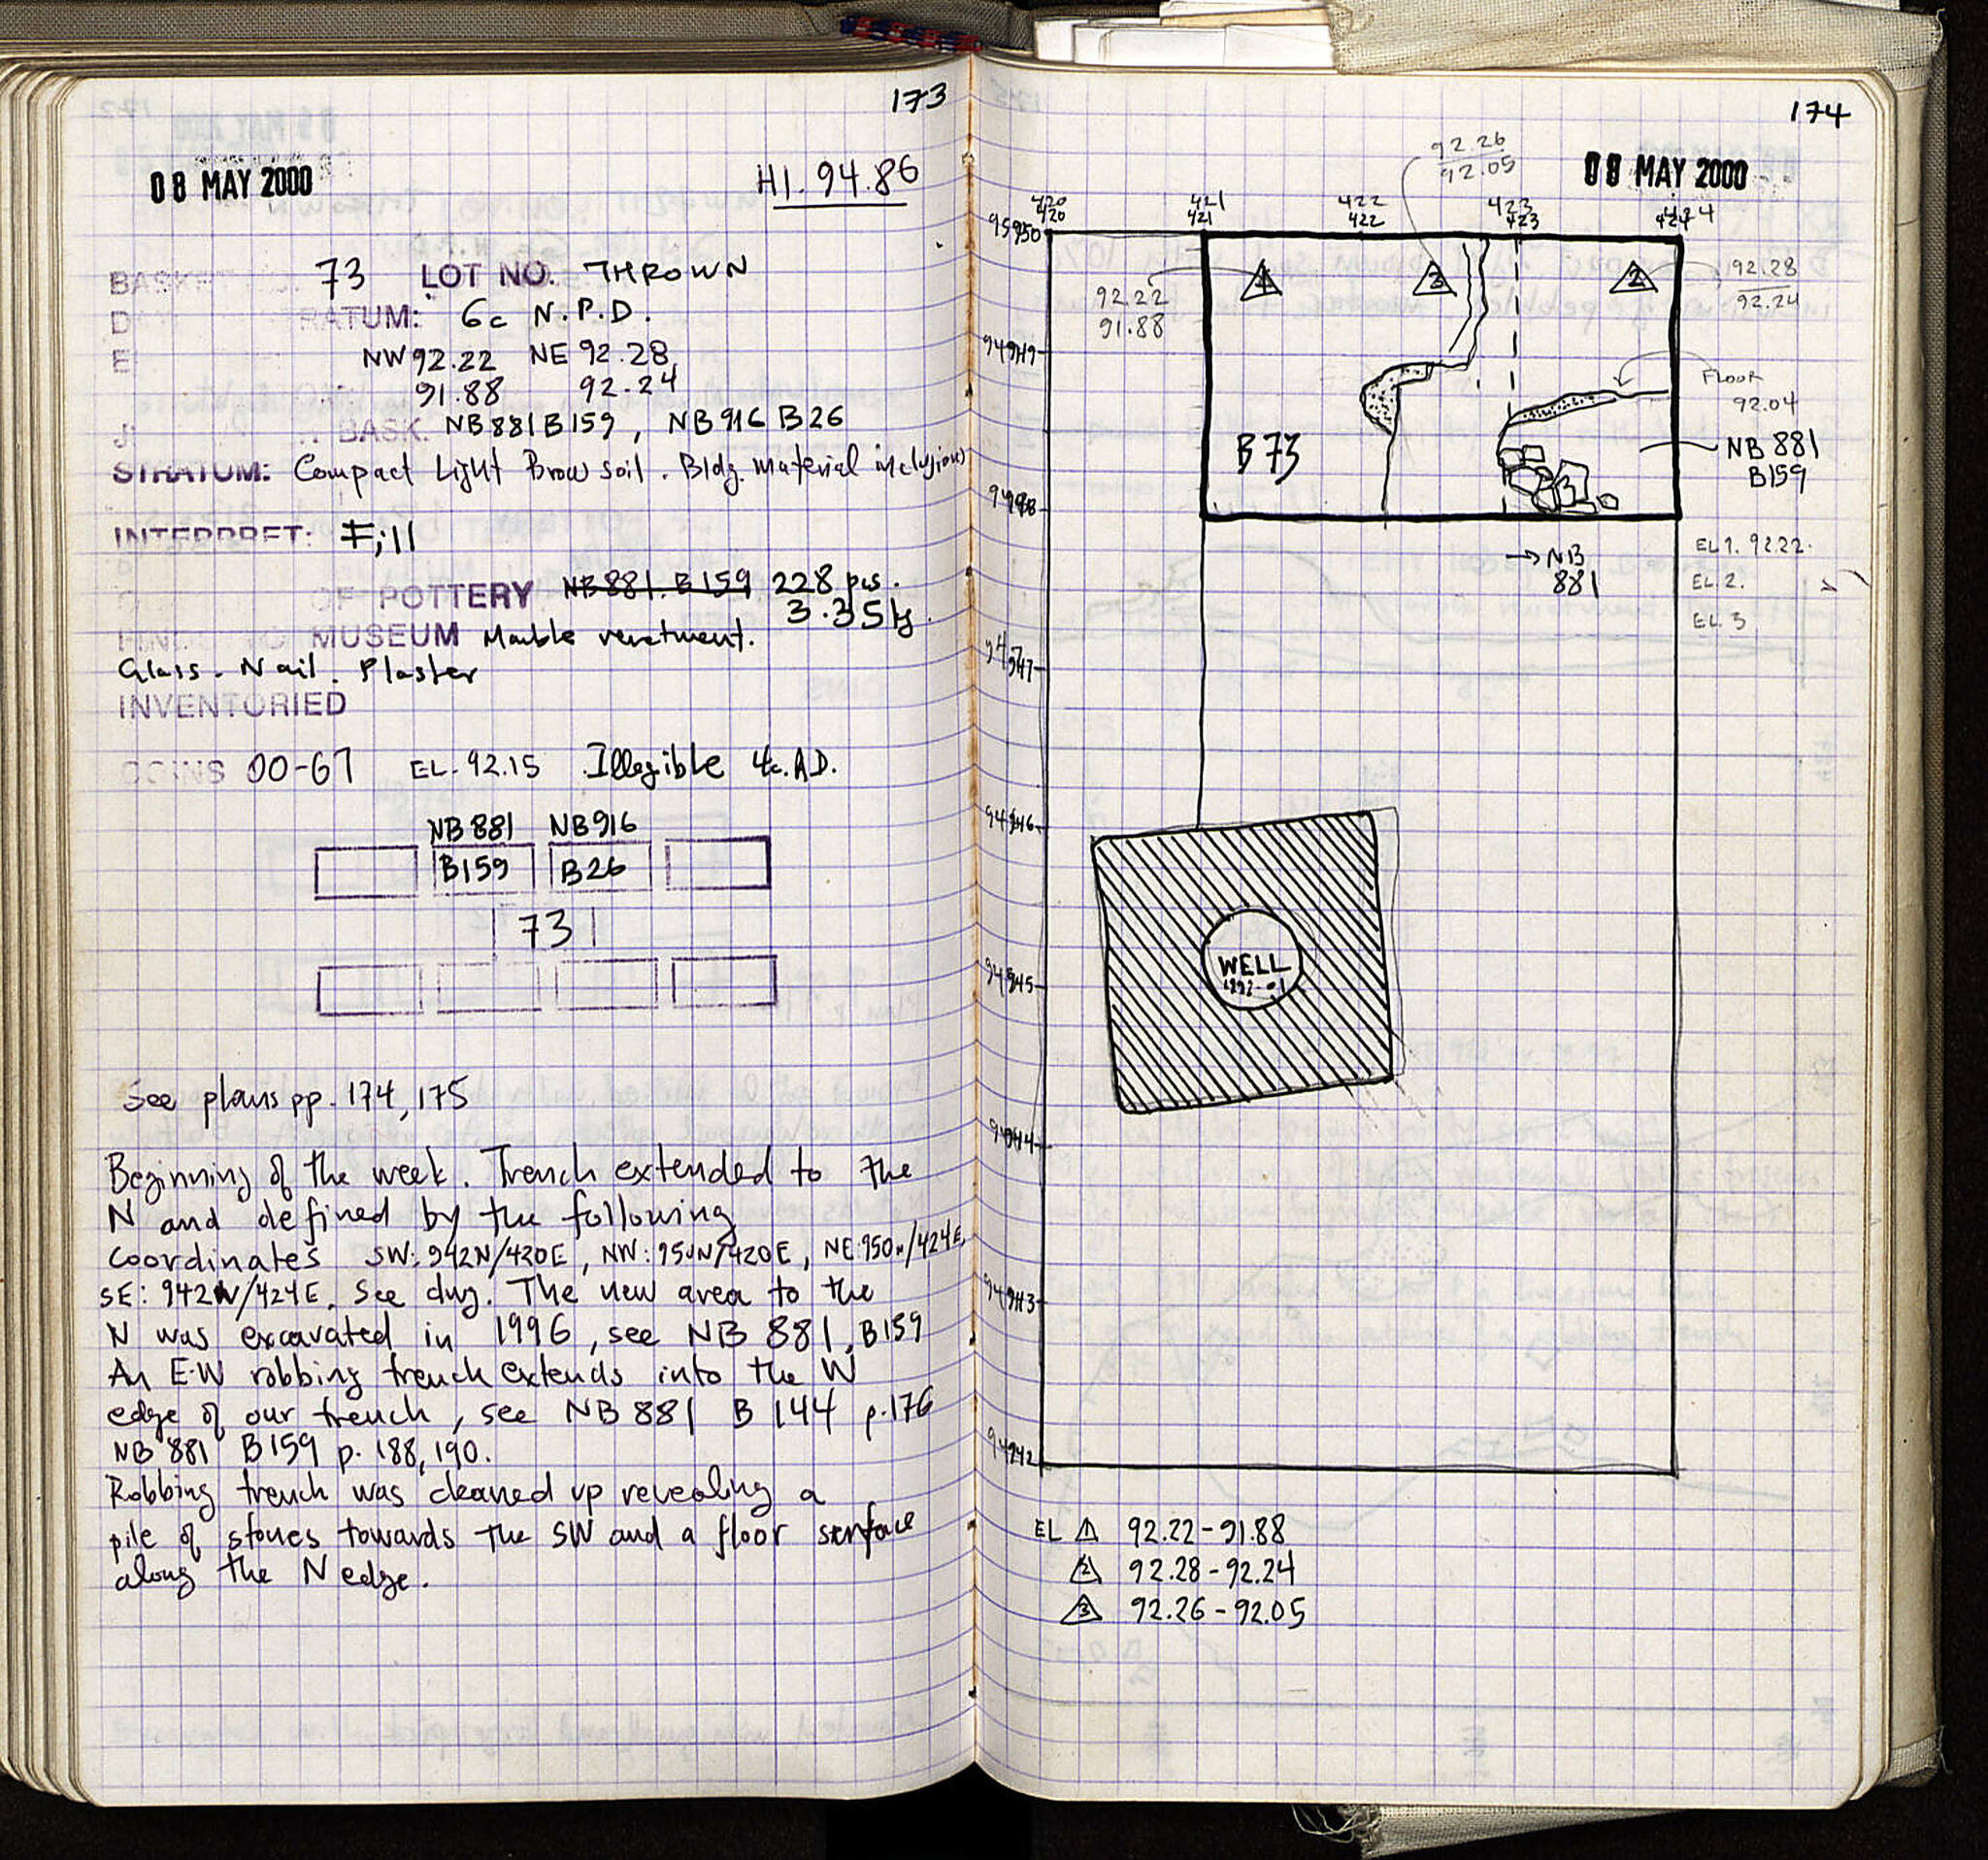 173
08 MAY 2000
HI. 94.86
BASKET 73 LOT NO. THROWN
RATUM: 6c N.P.D.
NW 92.22 NE 92.28
91.88 92.24
BASK. NB881B159, NB916 B26
STRATUM: Compact Light Brow soil. Bldg. material inclusions
INTERPRET: Fill
OF POTTERY NB 881. B159 228 pcs.
3.35 kg.
MUSEUM Marble revetment.
Glass. Nail. Plaster
INVENTORIED
COINS 00-67 EL. 92.15 Illegible 4c. AD.
NB881 NB916
B159 B26
73
See plans pp. 174, 175
Beginning of the week. Trench extended to the
N and defined by the following
coordinates SW: 942N/420E, NW: 950N/420E, NE: 950N/424E,
SE: 942N/424E. See dwg. The new area to the
N was excavated in 1996, see NB 881, B159
An E-W robbing trench extends into the W
edge of our trench, see NB 881 B 144 p.176
NB 881 B159 p. 188, 190.
Robbing trench was cleaned up revealing a
pile of stones towards the SW and a floor surface
along the N edge.
174
08 MAY 2000
92.26
92.05
420 421 422 423 424
420 421 422 423 424
950
1 3 2
92.22
91.88
92.28
92.24
949
FLOOR
92.04
B73
NB 881
B159
948
→ NB
881
EL 1. 92.22.
EL 2.
EL 3
947
946
945
WELL
944
943
942
EL 1 92.22-91.88
2 92.28-92.24
3 92.26-92.05